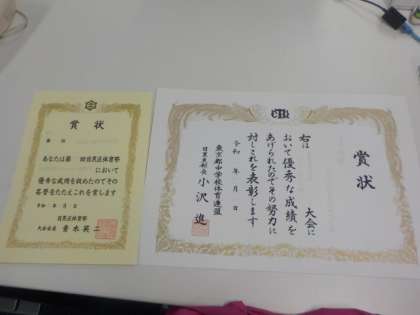 賞状
あなたは第　回自民区体育祭
において
優秀な成績を収めたのでその
名誉をたたえこれを賞します
令和　年　月　日
自民区体育祭
大会会長　青木英二
賞状
右は　　　　大会に
おいて優秀な成績を
あげられたのでその努力に
対しこれを表彰します
令和　年　月　日
東京都中学校体育連盟
目黒支部長　小沢　進